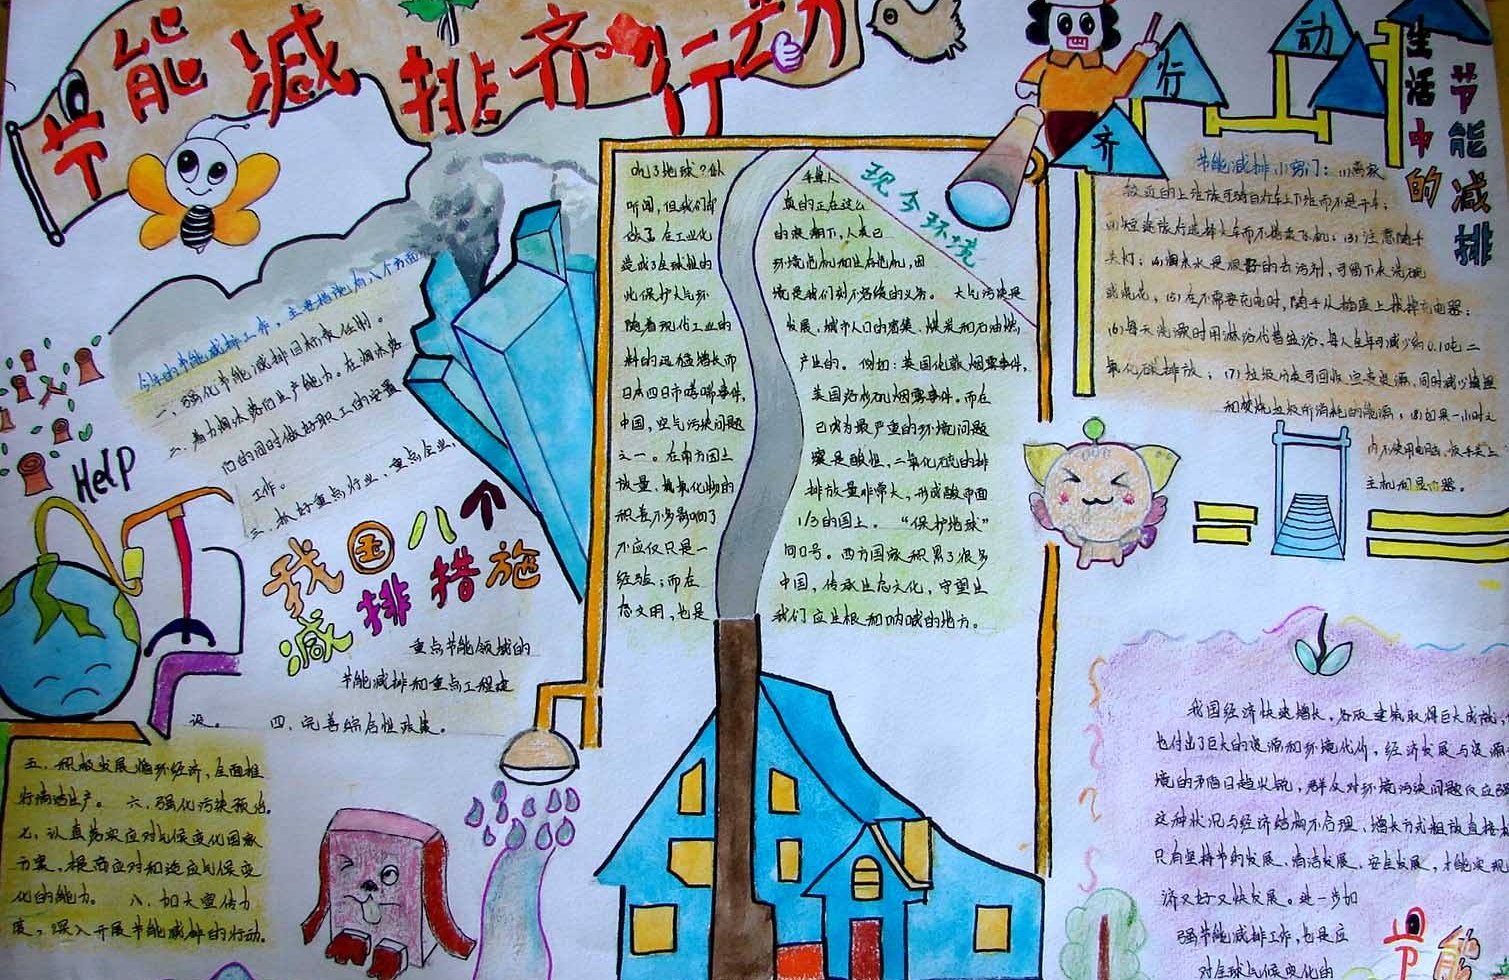 节能减排齐行动
今年的节能减排工作，主要措施有八个方面
一、强化节能减排目标责任制。
二、着力淘汰落后生产能力。在淘汰落
后的同时做好职工的安置
工作。
三、抓好重点行业、重点企业、
重点节能领域的
节能减排和重点工程建
设。 四、完善综合性政策。
五、积极发展循环经济，全面推
行清洁生产。 六、强化污染预治。
七、认真落实应对气候变化国家
方案，提高应对和适应气候变
化的能力。 八、加大宣传力
度，深入开展节能减排的行动。
我国八个
减排措施
Help
现今环境
听闻，但我们却
做了。在工业化
造成了全球性的
此保护大气环
随着现代工业的
料的迅猛增长而
日本四日市哮喘事件，
中国，空气污染问题
之一。在南方国土
放量、
积差不多影响了
不应仅只是一
经验；而在
态文明，也是
真的正在这么
的浪潮下，人类已
环境危机和生存危机，因
境是我们刻不容缓的义务。 大气污染是
发展、城市人口的密集、煤炭和石油燃，
产生的。 例如：英国伦敦烟雾事件，
美国洛杉矶烟雾事件。而在
已成为最严重的环境问题
壤是酸性，二氧化硫的排
排放量非常大，形成酸雨面
1/3的国土。 “保护地球”
同口号。西方国家积累了很多
中国，传承生态文化，守望生
我们应生根和呐喊的地方。
齐
行
动
生活中的
节能减排
节能减排小窍门：(1)离家
较近的上班族可骑自行车上下班而不是开车；
(2)短途旅行选择火车而不搭乘飞机；(3)注意随手
关灯；(4)淘米水是很好的去污剂，可留下来洗碗
或浇花，(5)在不需要充电时，随手从插座上拔掉充电器；
(6)每天洗澡时用淋浴代替盆浴，每人全年可减少约0.1吨二
氧化碳排放，；(7)垃圾分类可回收宝贵资源，同时减少填埋
和焚烧垃圾所消耗的能源；(8)如果一小时之
内不使用电脑，顺手关上
主机和显示器。
我国经济快速增长，各项建筑取得巨大成就，
也付出了巨大的资源和环境代价，经济发展与资源
境的矛盾日趋尖锐，群众对环境污染问题反应强
这种状况与经济结构不合理、增长方式粗放直接相
只有坚持节约发展、清洁发展、安全发展，才能实现
济又好又快发展。进一步加
强节能减排工作，也是应
对全球气候变化的
节能